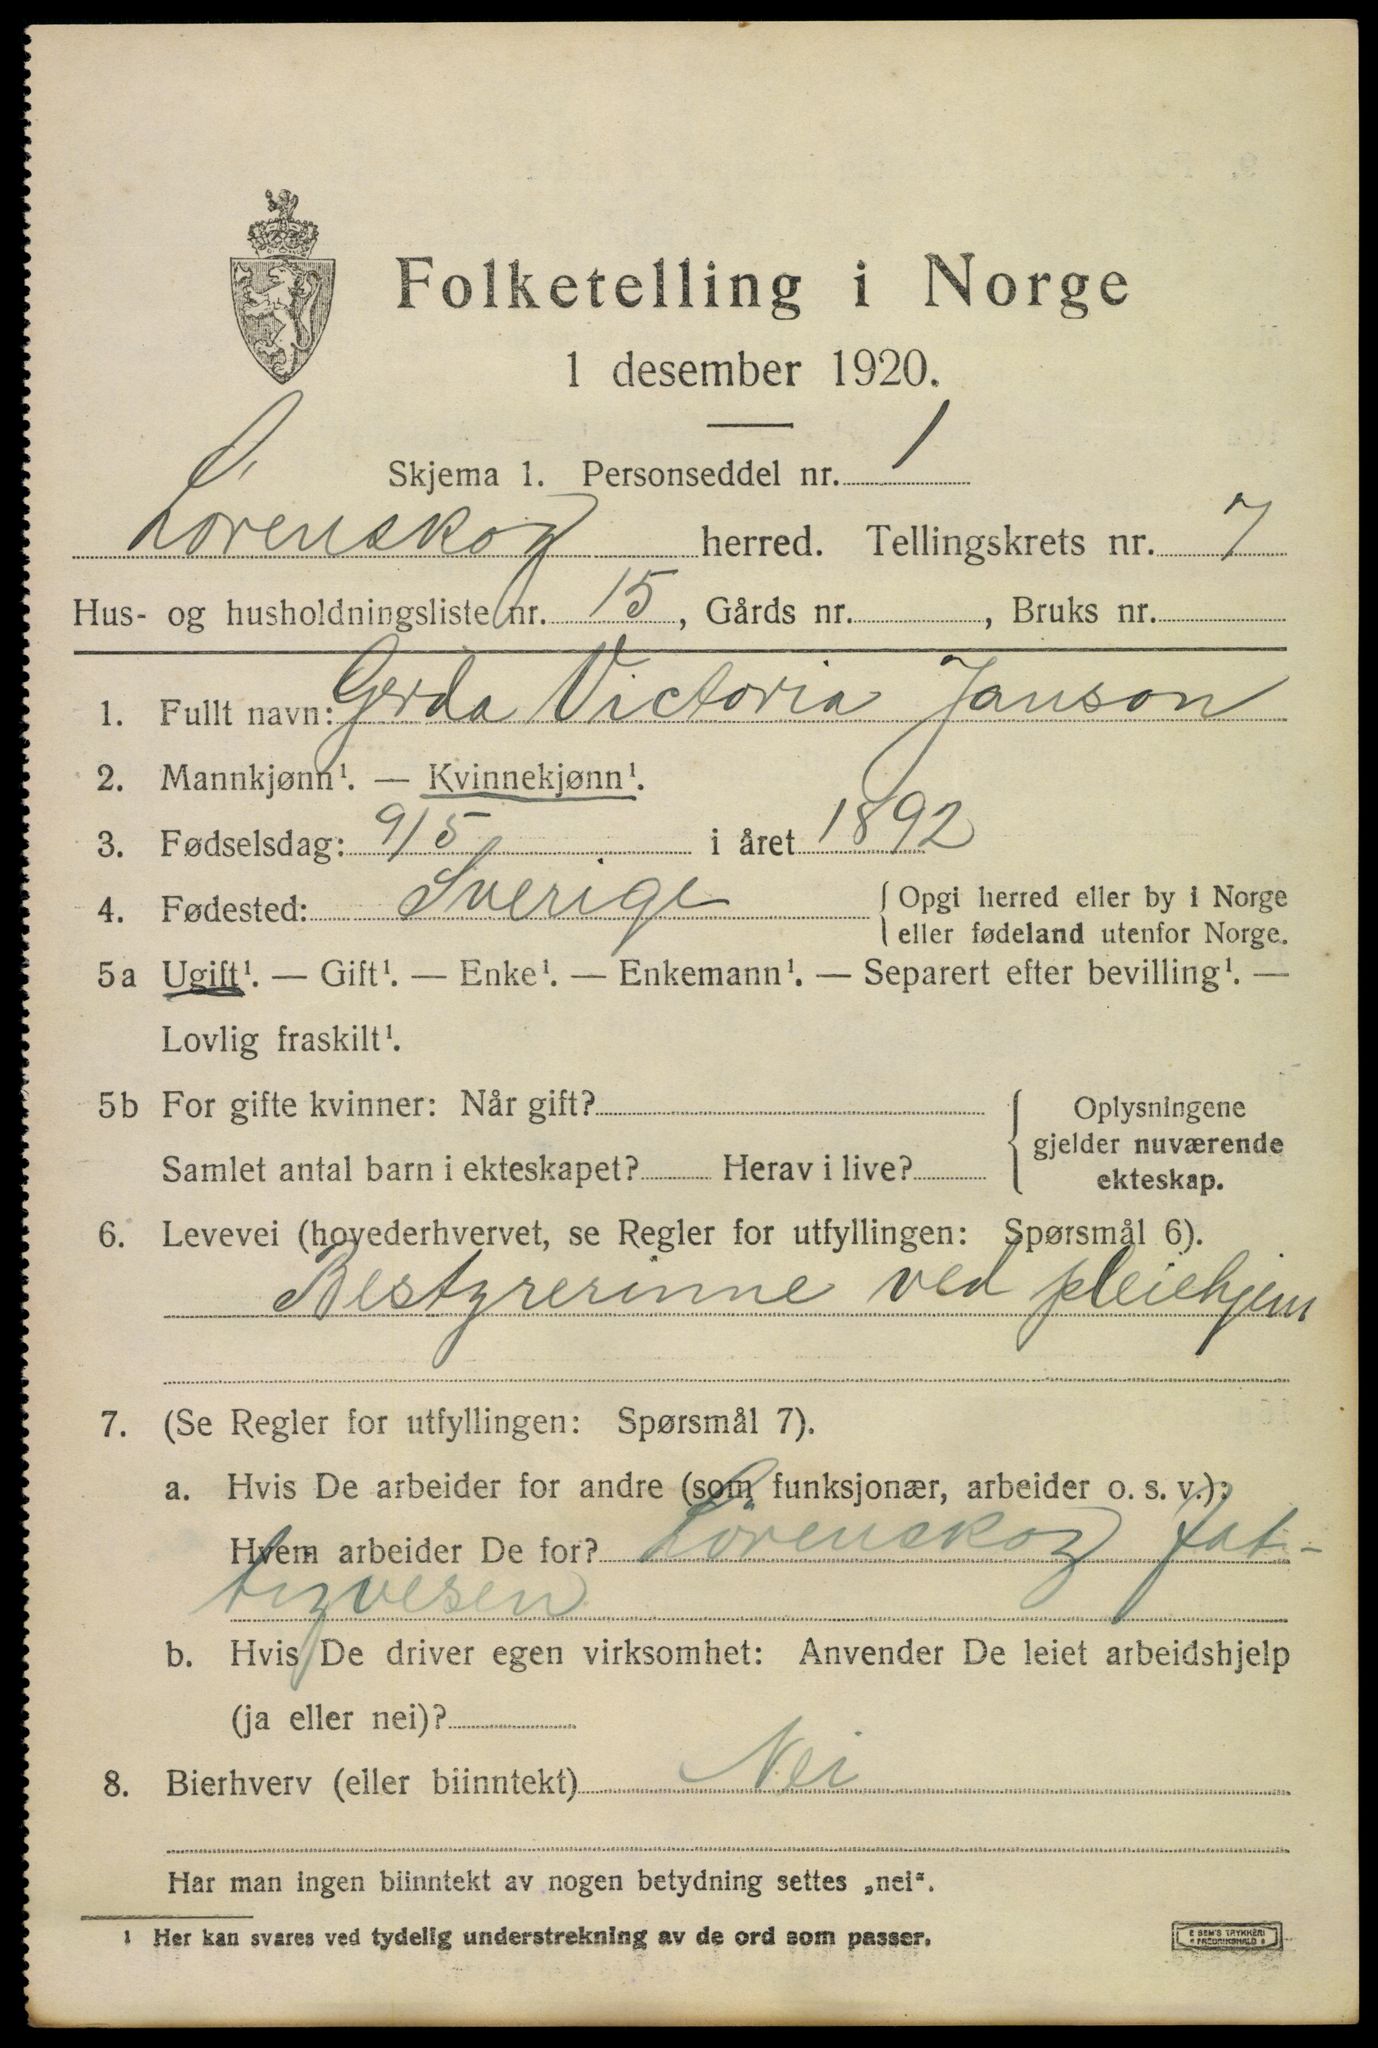 Folketelling i Norge
1 desember 1920.
Skjema 1. Personseddel nr. 1
Lørenskog herred. Tellingskrets nr. 7
Hus- og husholdningsliste nr. 15, Gårds nr. , Bruks nr.
1. Fullt navn: Gerda Victoria Janson
2. Mannkjønn¹. — Kvinnekjønn¹.
3. Fødselsdag: 9/5 i året 1892
4. Fødested: Sverige { Opgi herred eller by i Norge
eller fødeland utenfor Norge.
5a Ugift¹. — Gift¹. — Enke¹. — Enkemann¹. — Separert efter bevilling¹. —
Lovlig fraskilt¹.
5b For gifte kvinner: Når gift? { Oplysningene
gjelder nuværende
Samlet antal barn i ekteskapet? Herav i live? ekteskap.
6. Levevei (hovederhvervet, se Regler for utfyllingen: Spørsmål 6).
Bestyrerinne ved pleiehjem
7. (Se Regler for utfyllingen: Spørsmål 7).
a. Hvis De arbeider for andre (som funksjonær, arbeider o. s. v.):
Hvem arbeider De for? Lörenskog fat-
tigvesen
b. Hvis De driver egen virksomhet: Anvender De leiet arbeidshjelp
(ja eller nei)?
8. Bierhverv (eller biinntekt) Nei
Har man ingen biinntekt av nogen betydning settes „nei".
¹ Her kan svares ved tydelig understrekning av de ord som passer.
E SEM'S TRYKKERI
FREDRIKSHALD